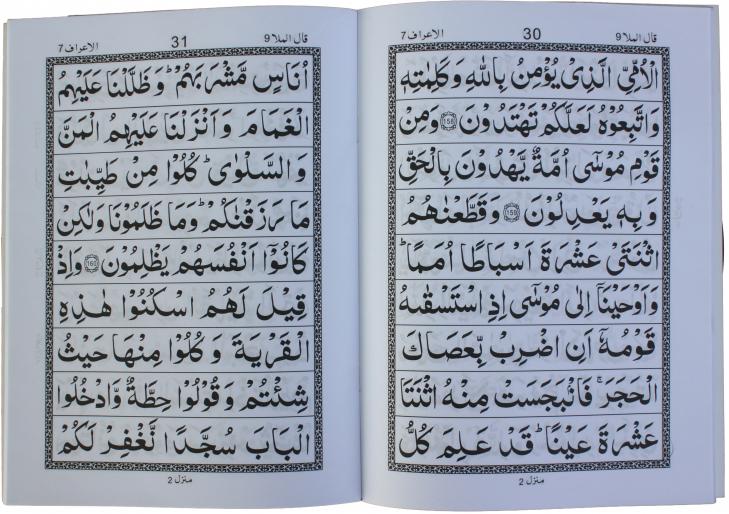 قال الملا ٩ 30 الاعراف ٧
الْاُمِّیِّ الَّذِیْ یُؤْمِنُ بِاللّٰهِ وَ كَلِمٰتِهٖ
وَ اتَّبِعُوْهُ لَعَلَّكُمْ تَهْتَدُوْنَ 158 وَ مِنْ
قَوْمِ مُوْسٰۤی اُمَّةٌ یَّهْدُوْنَ بِالْحَقِّ
وَ بِهٖ یَعْدِلُوْنَ 159 وَ قَطَّعْنٰهُمُ
اثْنَتَیْ عَشْرَةَ اَسْبَاطًا اُمَمًا ؕ
وَ اَوْحَیْنَاۤ اِلٰی مُوْسٰۤی اِذِ اسْتَسْقٰىهُ
قَوْمُهٗۤ اَنِ اضْرِبْ بِّعَصَاكَ
الْحَجَرَ ۚ فَانْۢبَجَسَتْ مِنْهُ اثْنَتَا
عَشْرَةَ عَیْنًا ؕ قَدْ عَلِمَ كُلُّ
منزل 2
قال الملا 9 31 الاعراف 7
اُنَاسٍ مَّشْرَبَهُمْ ؕ وَ ظَلَّلْنَا عَلَیْهِمُ
الْغَمَامَ وَ اَنْزَلْنَا عَلَیْهِمُ الْمَنَّ
وَ السَّلْوٰی ؕ كُلُوْا مِنْ طَیِّبٰتِ
مَا رَزَقْنٰكُمْ ؕ وَ مَا ظَلَمُوْنَا وَ لٰكِنْ
كَانُوْۤا اَنْفُسَهُمْ یَظْلِمُوْنَ 160 وَ اِذْ
قِیْلَ لَهُمُ اسْكُنُوْا هٰذِهِ
الْقَرْیَةَ وَ كُلُوْا مِنْهَا حَیْثُ
شِئْتُمْ وَ قُوْلُوْا حِطَّةٌ وَّ ادْخُلُوا
الْبَابَ سُجَّدًا نَّغْفِرْ لَكُمْ
منزل 2